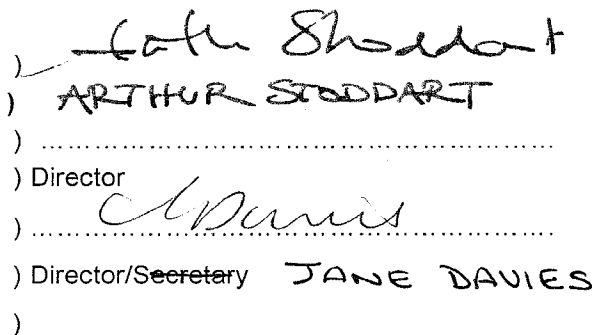 ) Stoddart
) ARTHUR STODDART
) ..........................................................
) Director
) Davies ..........................................................
) Director/Secretary JANE DAVIES
)